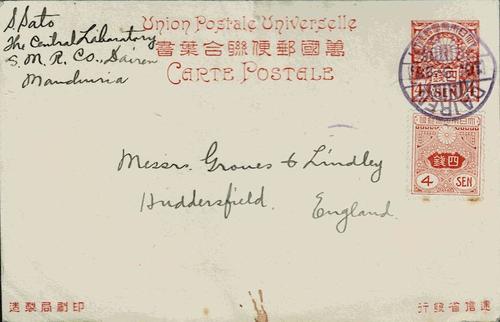 S Sato
The Central Laboratory
S. M. R. Co., Dairen
Manchuria
Union Postale Universelle
萬國郵便聯合葉書
CARTE POSTALE
DAIREN
四錢
4 SEN
Messrs. Groves & Lindley
Huddersfield.
England.
印刷局製造
遞信省發行